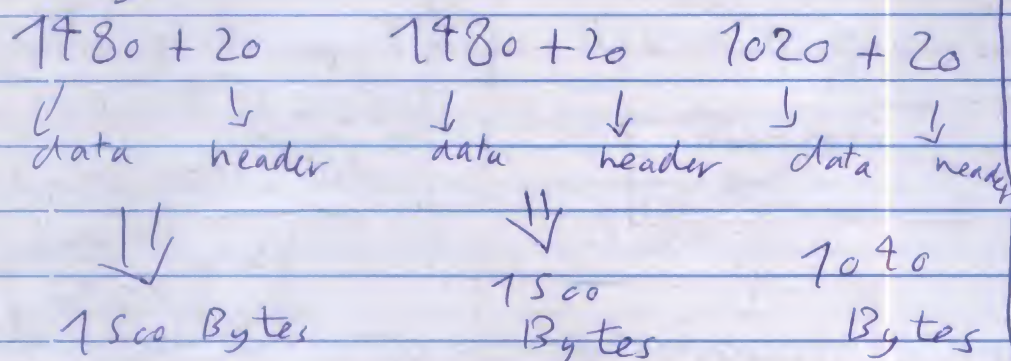 1480 + 20 1480 + 20 1020 + 20
data header data header data header
1500 Bytes 1500 Bytes 1040 Bytes